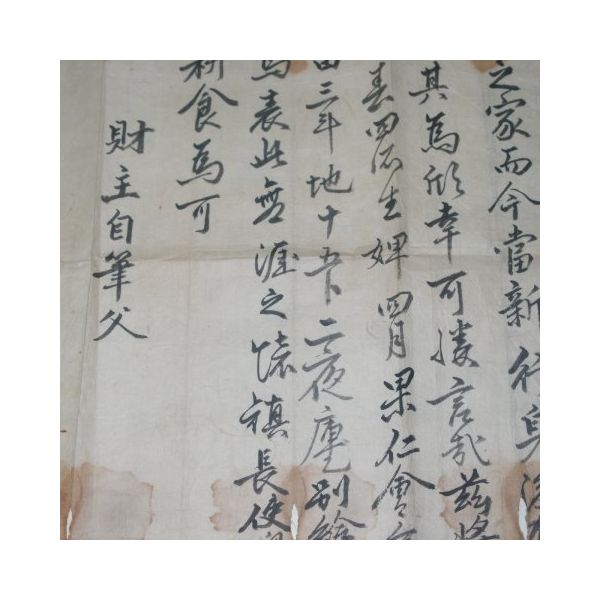 之家而今當新行身
其為欣幸可勝言哉茲將
春四所生婢四月果仁會
田三斗地十五卜二夜庫別給
馬表此無涯之懷稹長使
耕食為可
財主自筆父